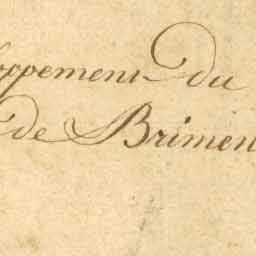 oppement du
de Brimen